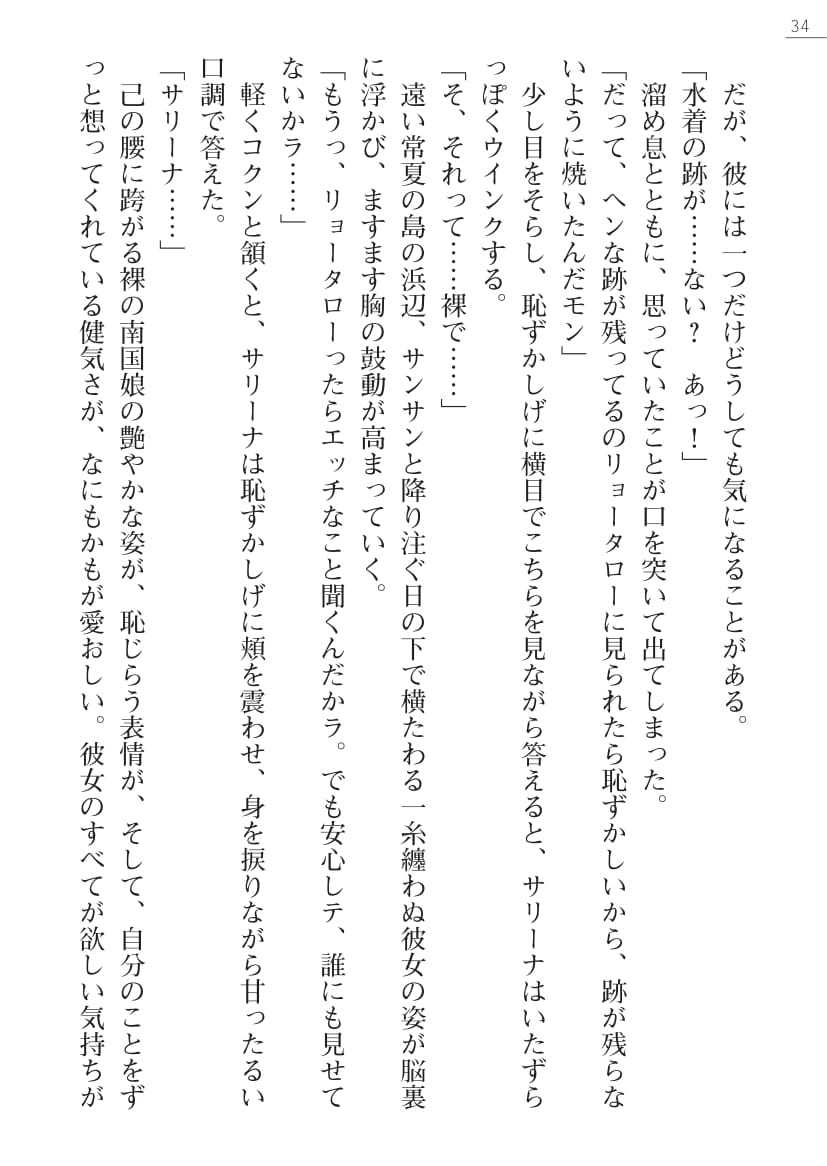 34
　だが、彼には一つだけどうしても気になることがある。
「水着の跡が……ない？　あっ！」
　溜め息とともに、思っていたことが口を突いて出てしまった。
「だって、ヘンな跡が残ってるのリョータローに見られたら恥ずかしいから、跡が残らな
いように焼いたんだモン」
　少し目をそらし、恥ずかしげに横目でこちらを見ながら答えると、サリーナはいたずら
っぽくウインクする。
「そ、それって……裸で……」
　遠い常夏の島の浜辺、サンサンと降り注ぐ日の下で横たわる一糸纏わぬ彼女の姿が脳裏
に浮かび、ますます胸の鼓動が高まっていく。
「もうっ、リョータローったらエッチなこと聞くんだかラ。でも安心しテ、誰にも見せて
ないかラ……」
　軽くコクンと頷くと、サリーナは恥ずかしげに頬を震わせ、身を捩りながら甘ったるい
口調で答えた。
「サリーナ……」
　己の腰に跨がる裸の南国娘の艶やかな姿が、恥じらう表情が、そして、自分のことをず
っと想ってくれている健気さが、なにもかもが愛おしい。彼女のすべてが欲しい気持ちが